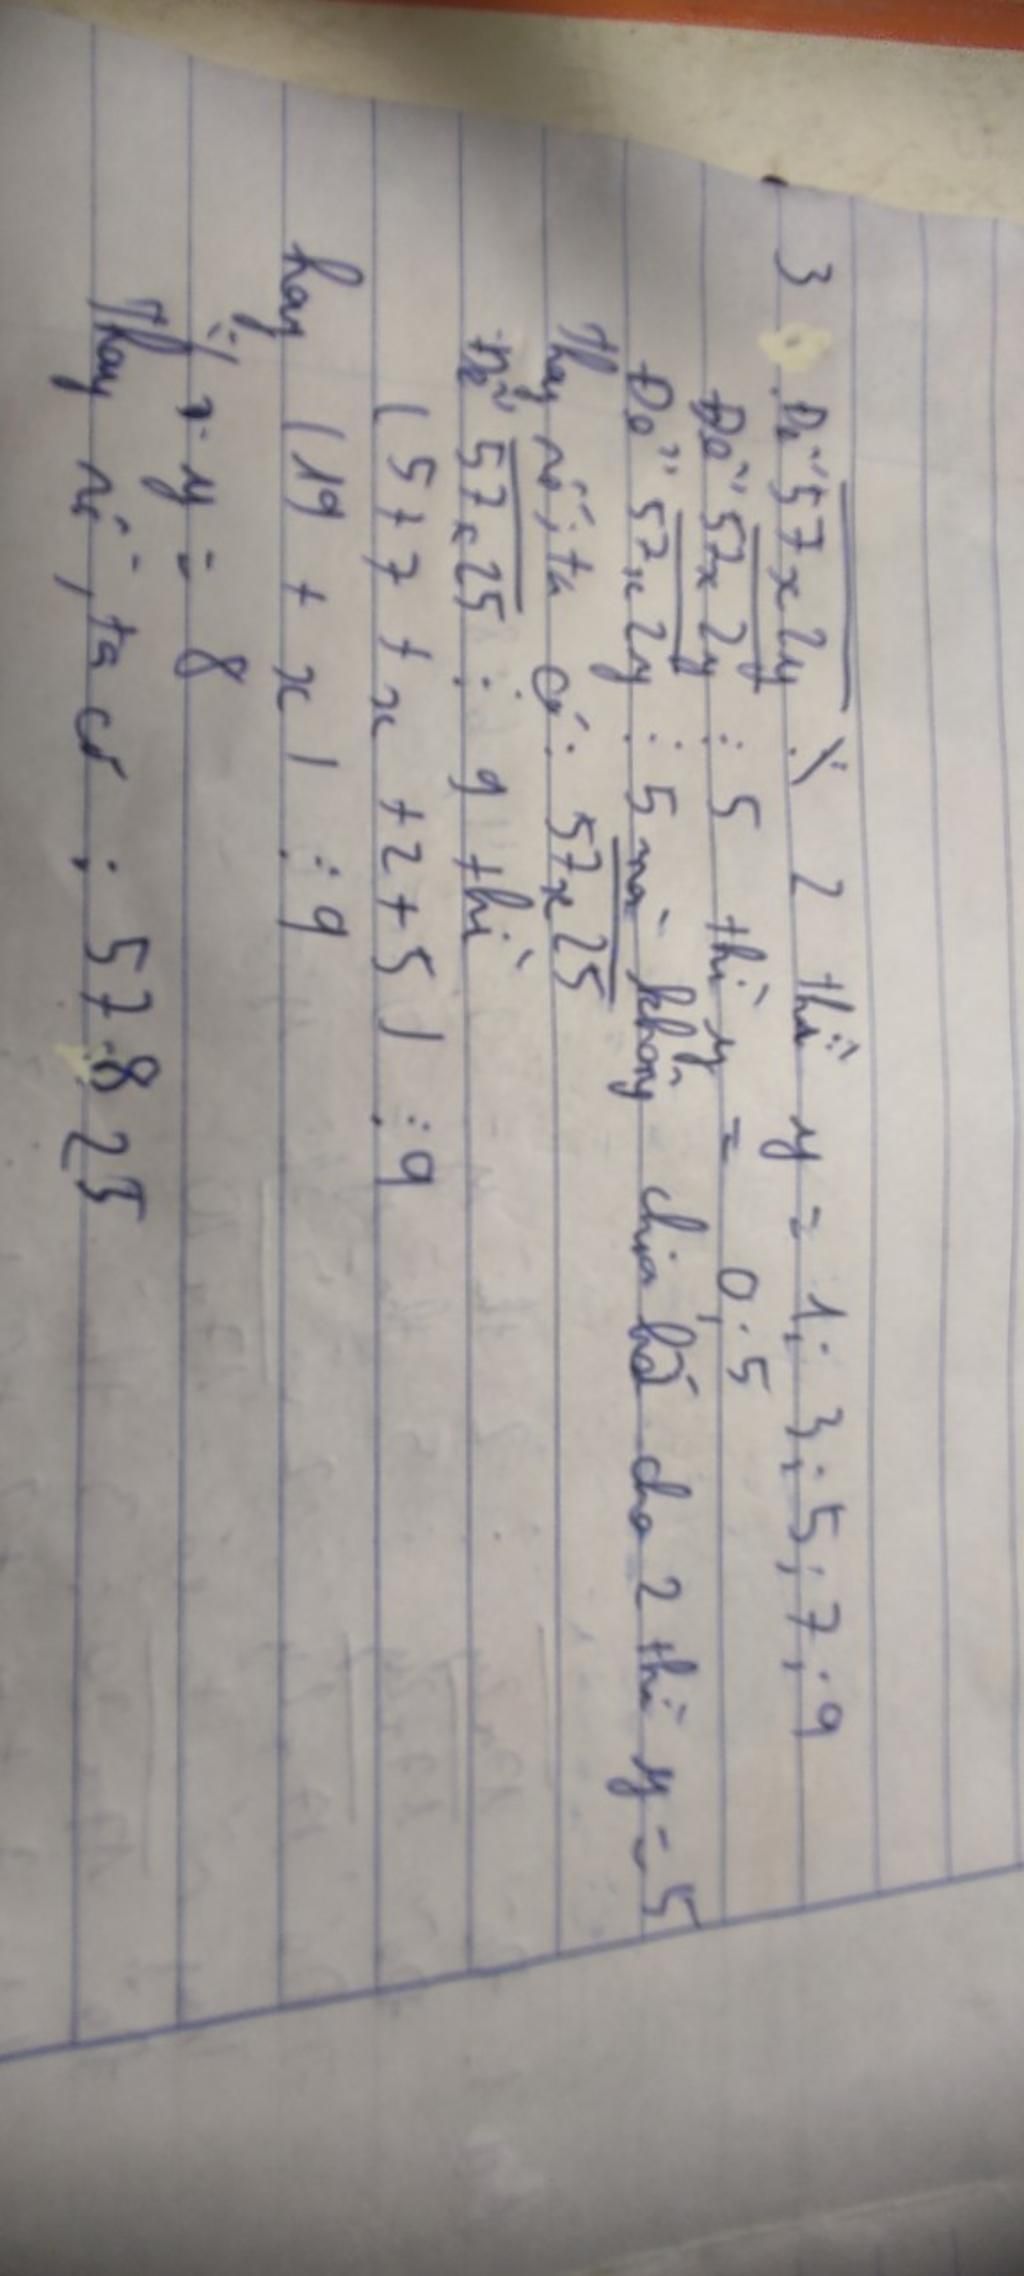 3. Để 57x2y ⋮̸ 2 thì y = 1; 3; 5; 7; 9
Để 57x2y ⋮ 5 thì y = 0; 5
Để 57x2y ⋮ 5 mà không chia hết cho 2 thì y = 5
Thay số, ta có: 57x25
Để 57x25 ⋮ 9 thì
(5+7+x+2+5) ⋮ 9
hay (19 + x) ⋮ 9
y = 8
Thay số, ta có: 57825